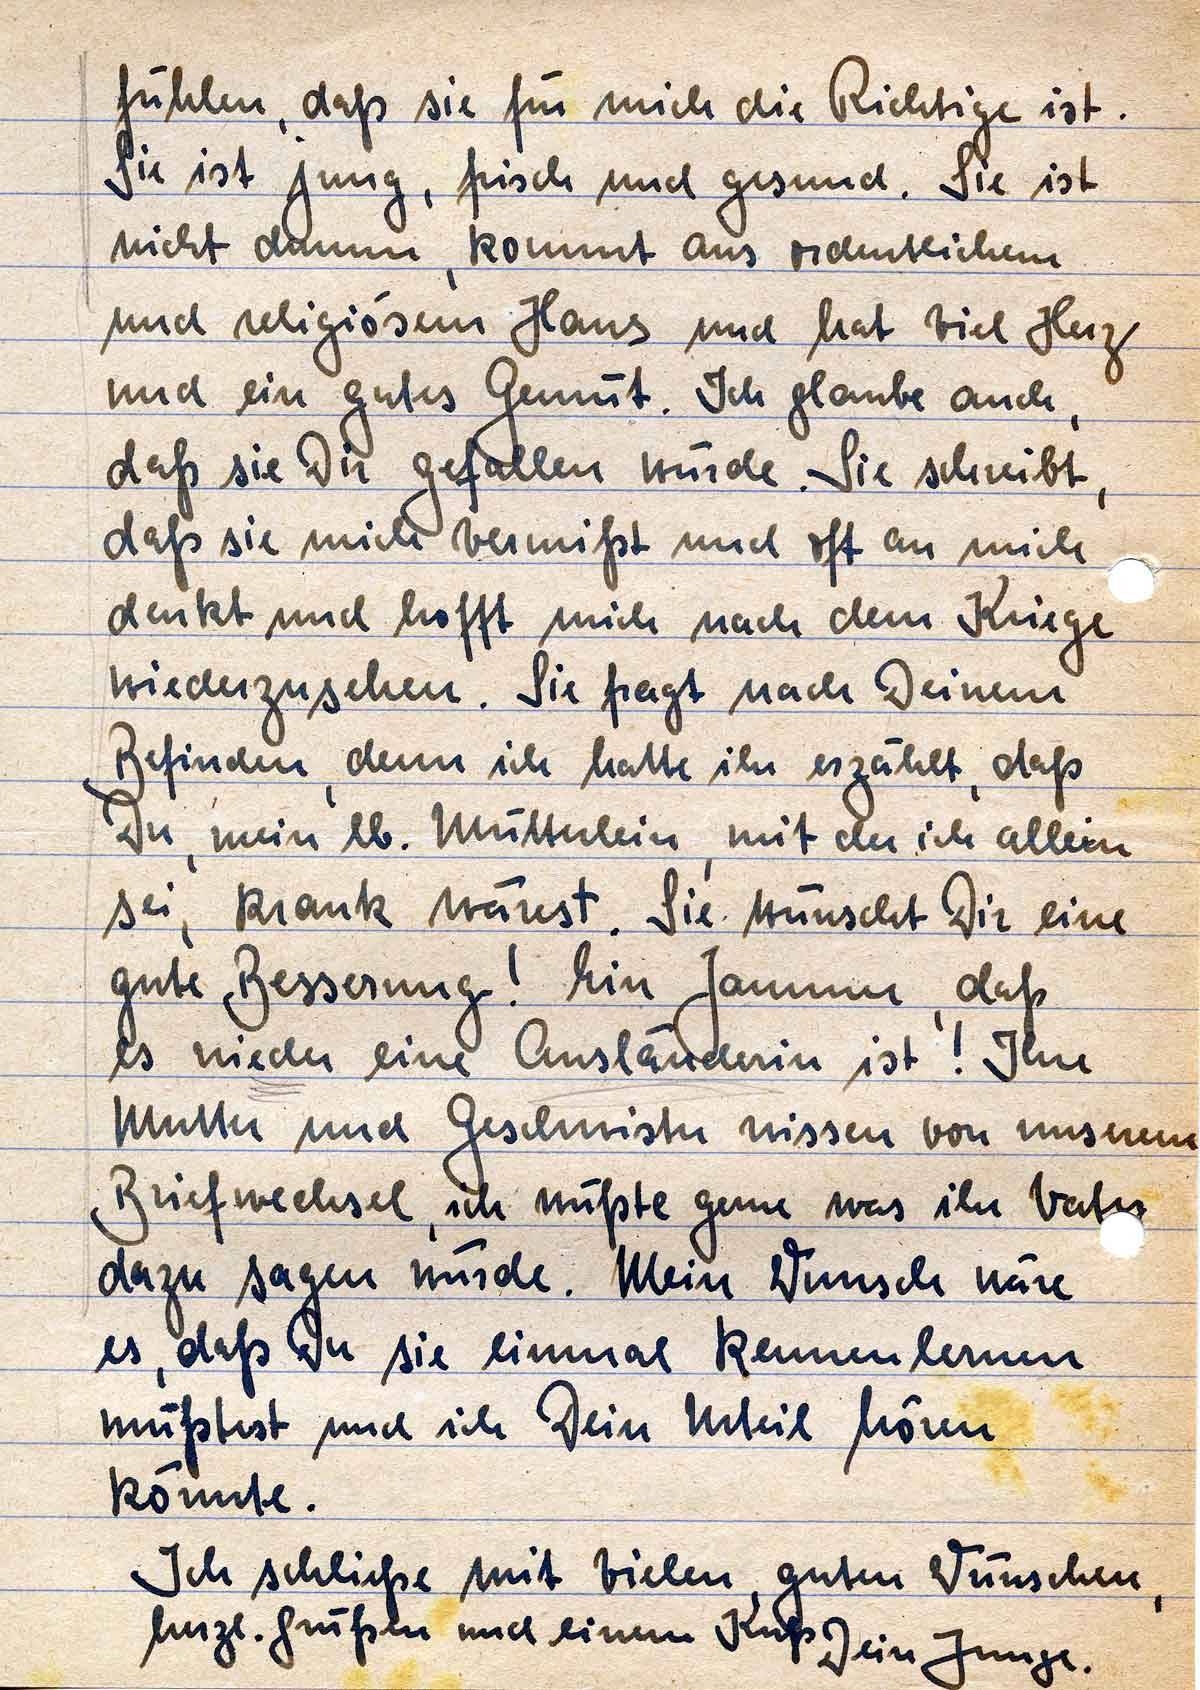 fühlen, daß sie für mich die Richtige ist.
Sie ist jung, frisch und gesund. Sie ist
nicht dumm, kommt aus ordentlichem
und religiösem Haus und hat viel Herz
und ein gutes Gemüt. Ich glaube auch,
daß sie Dir gefallen würde. Sie schreibt,
daß sie mich vermißt und oft an mich
denkt und hofft mich nach dem Kriege
wiederzusehen. Sie fragt nach Deinem
Befinden, denn ich hatte ihr erzählt, daß
Du, mein lb. Mütterlein, mit der ich allein
sei, krank wärest. Sie wünscht Dir eine
gute Besserung! Ein Jammer, daß
es wieder eine Ausländerin ist! Ihre
Mutter und Geschwister wissen von unserem
Briefwechsel, ich wüßte gerne was ihr Vater
dazu sagen würde. Mein Wunsch wäre
es, daß Du sie einmal kennenlernen
müßtest und ich Dein Urteil hören
könnte.
Ich schließe mit vielen, guten Wünschen,
herzl. Grüßen und einem Kuß Dein Junge.